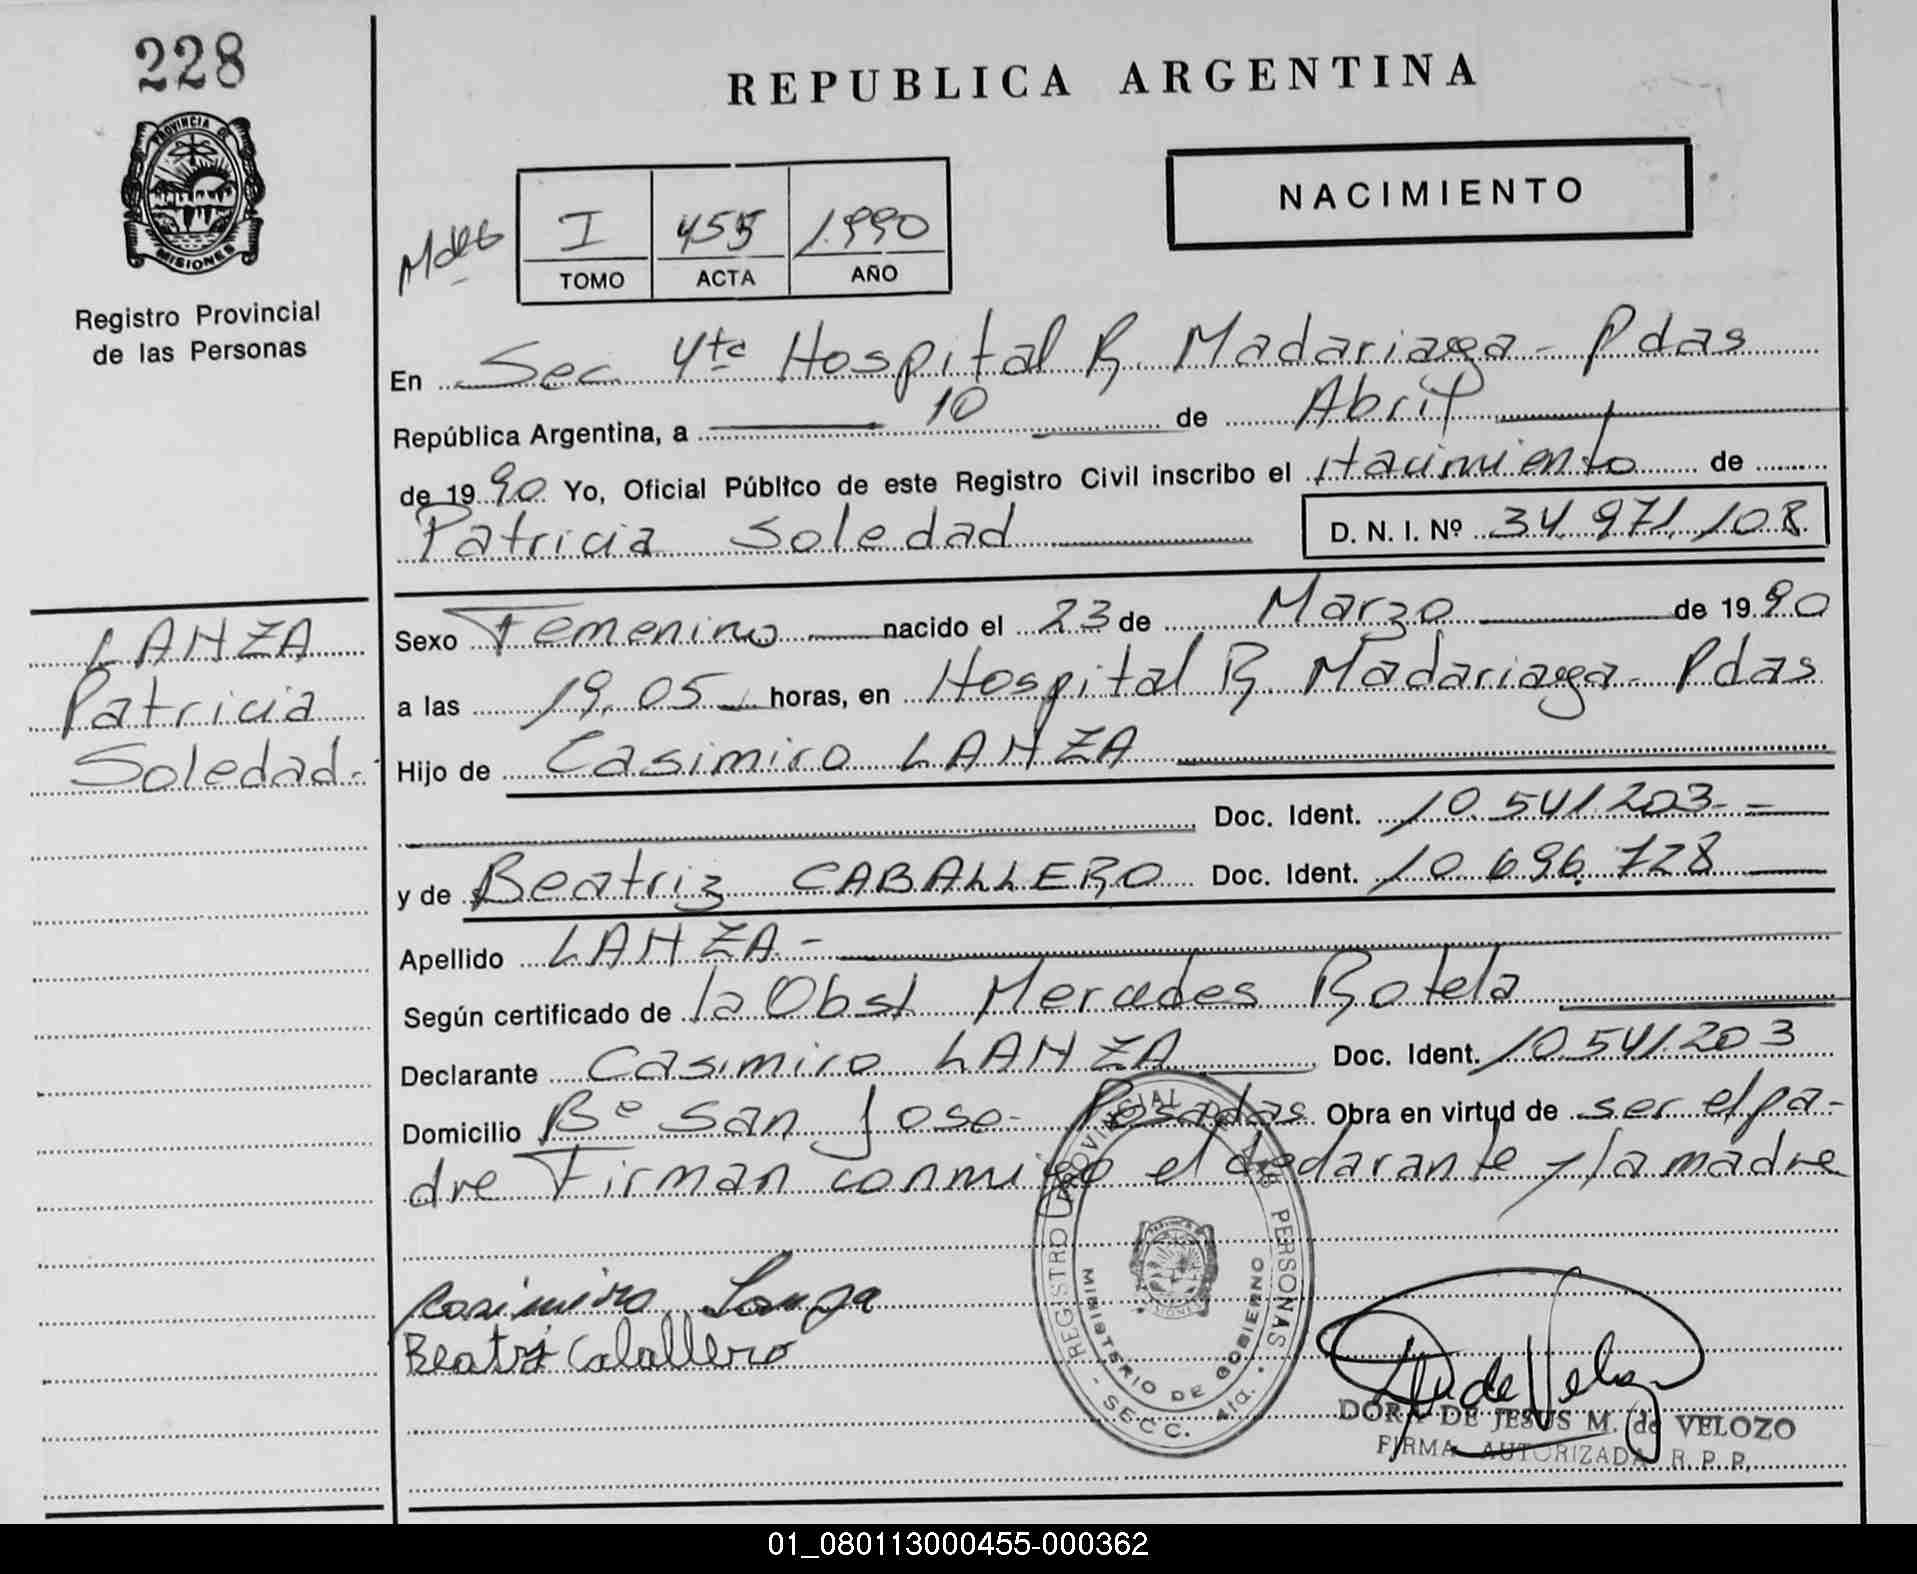 228
PROVINCIA DE
MISIONES
Registro Provincial
de las Personas
REPUBLICA ARGENTINA
NACIMIENTO
I 455 1.990
TOMO ACTA AÑO
En Sec 4ta Hospital R. Madariaga - Pdas
República Argentina, a 10 de Abril
de 19 90 Yo, Oficial Público de este Registro Civil inscribo el Nacimiento de
Patricia Soledad D. N. I. Nº 34.971.108
LANZA
Patricia
Soledad-
Sexo Femenino nacido el 23 de Marzo de 19 90
a las 19,05 horas, en Hospital R. Madariaga - Pdas
Hijo de Casimiro LANZA
Doc. Ident. 10.541.203-
y de Beatriz CABALLERO Doc. Ident. 10.696.728
Apellido LANZA -
Según certificado de la Obst Mercedes Rotela
Declarante Casimiro LANZA Doc. Ident. 10.541.203
Domicilio Bº San Jose - Posadas Obra en virtud de ser el pa-
dre Firman conmigo el declarante y la madre
Casimiro Lanza
Beatriz Caballero
REGISTRO PROVINCIAL DE LAS PERSONAS
MINISTERIO DE GOBIERNO
- SECC. 4ta. -
DORA DE JESUS M. de VELOZO
FIRMA AUTORIZADA R. P. P.
01_080113000455-000362